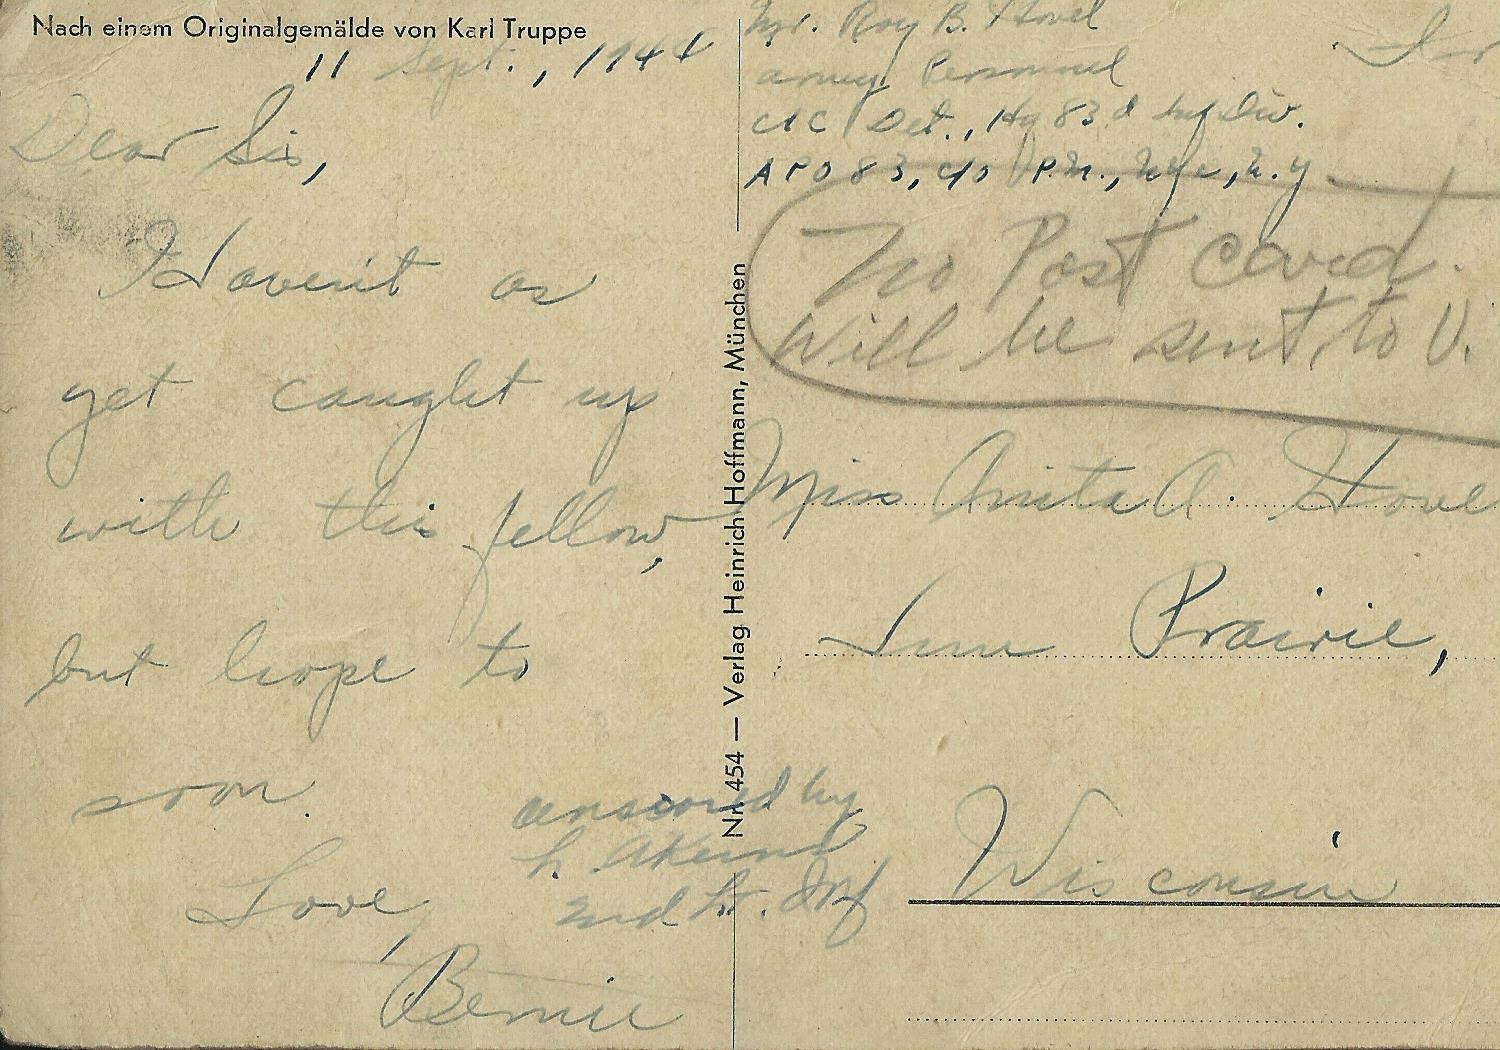 Nach einem Originalgemälde von Karl Truppe
11 Sept., 1944
Dear Sis,
Haven't as
yet caught up
with this fellow,
but hope to
soon.
Love,
Bernie
censored by
2nd Lt. Inf
Nr. 454 — Verlag Heinrich Hoffmann, München
Mr. Roy B. Hovel
Army Personnel
CIC Det., Hq 83d Inf Div.
APO 83, c/o P.M., Nyc, N.y.
No Post card.
Will be sent to U.
Miss Anita A. Hove
Sun Prairie,
Wisconsin